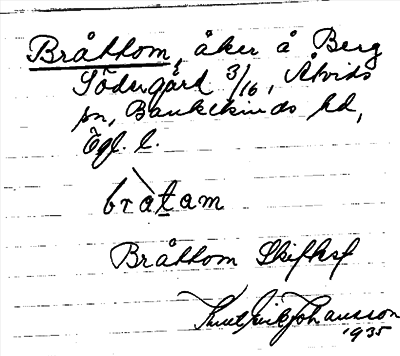 Bråttom, åker å Berg
Södergård 3/16, Åtvids
sn, Bankekinds hd,
Ögl. l.
bràtam
Bråttom Skifksf
Knut Erik Johansson
1935